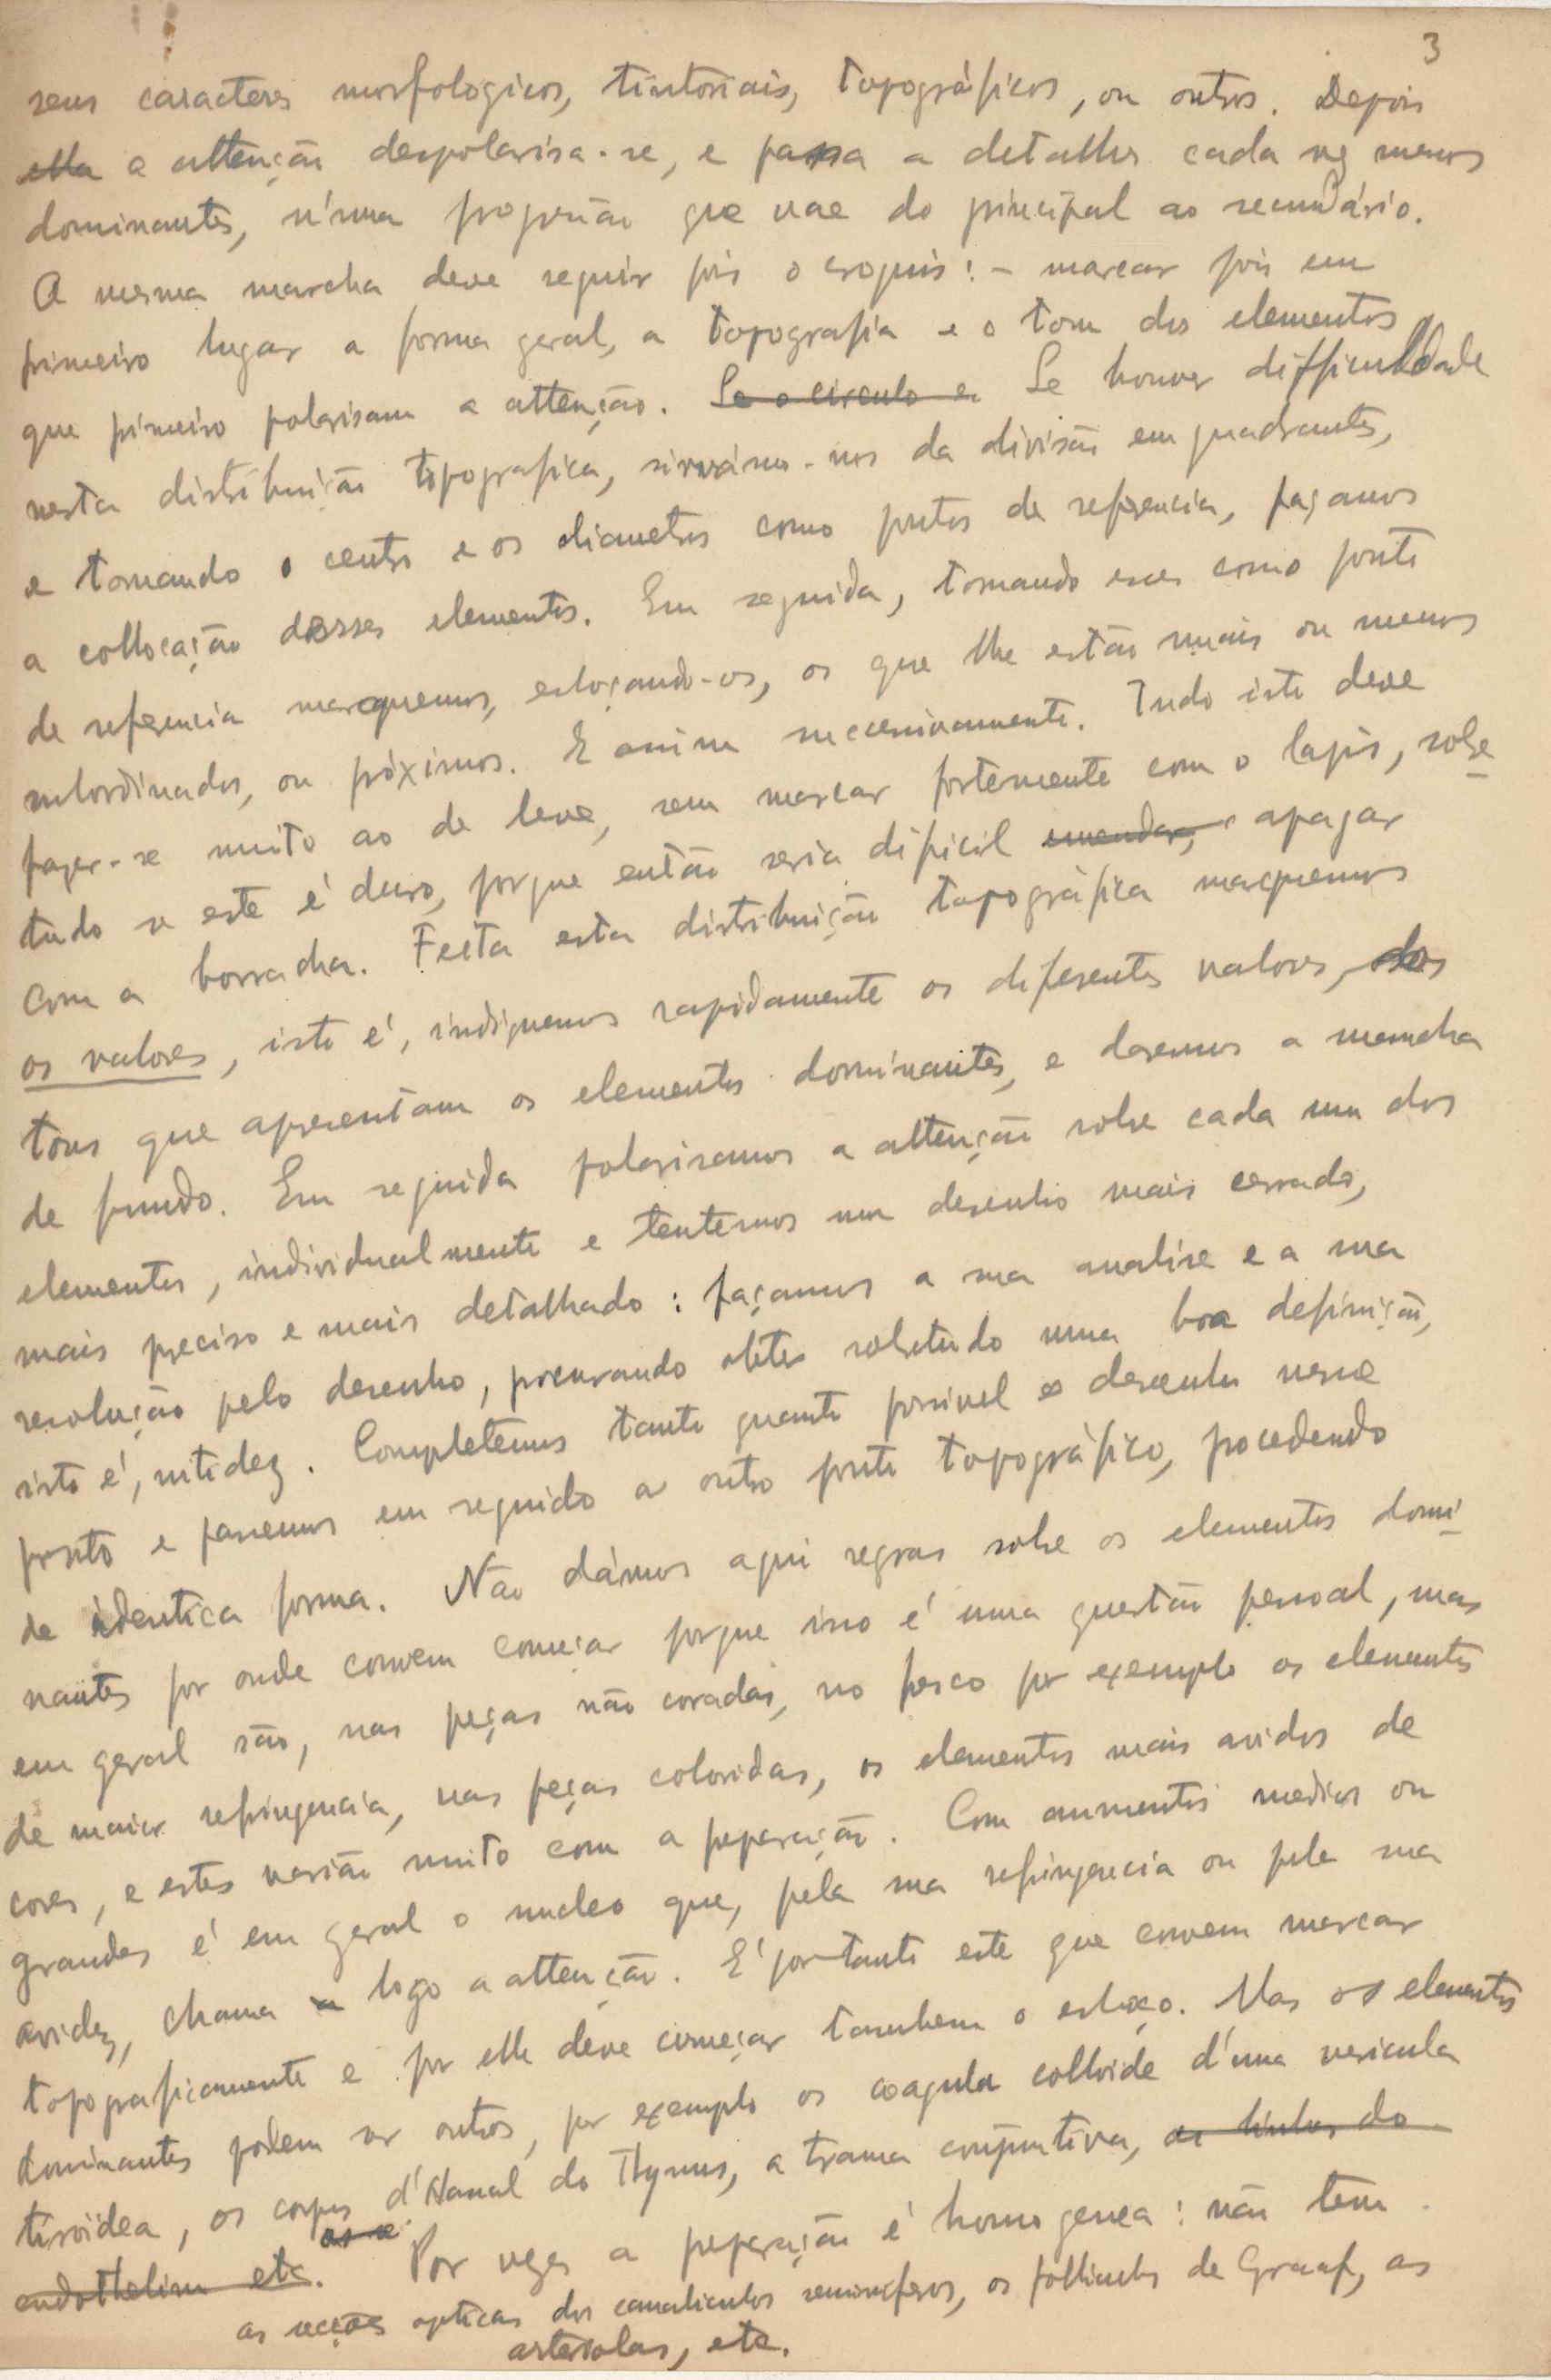 3
seus caracteres morfologicos, tintoriais, topográficos, ou outros. Depois
ella a attenção despolarisa-se, e passa a detalhes cada vez menos
dominantes, n'uma progressão que vae do principal ao secundário.
A mesma marcha deve seguir pois o croquis: - marcar pois em
primeiro lugar a forma geral, a topografia e o tom dos elementos
que primeiro polarisam a attenção. Se o circulo e Se houver difficuldade
nesta distribuição topografica, sirvámo-nos da divisão em quadrantes,
e tomando o centro e os diametros como pontos de referencia, façamos
a collocação desses elementos. Em seguida, tomando esses como ponto
de referencia marquemos, esboçando-os, os que lhe estão mais ou menos
subordinados, ou próximos. E assim successivamente. Tudo isto deve
fazer-se muito ao de leve, sem marcar fortemente com o lapis, sobre-
tudo se este é duro, porque então seria dificil emendar, apagar
com a borracha. Feita esta distribuição topográfica marquemos
os valores, isto é, indiquemos rapidamente os diferentes valores, dos
tons que apresentam os elementos dominantes, e daremos a mancha
de fundo. Em seguida polarisamos a attenção sobre cada um dos
elementos, individualmente e tentemos um desenho mais cerrado,
mais preciso e mais detalhado: façamos a sua analise e a sua
resolução pelo desenho, procurando obter sobretudo uma boa definição,
isto é, nitidez. Completemos tanto quanto possivel o desenho nesse
ponto e passemos em seguida a outro ponto topográfico, procedendo
de identica forma. Não dámos aqui regras sobre os elementos domi-
nantes por onde convem começar porque isso é uma questão pessoal, mas
em geral são, nas peças não coradas, no fresco por exemplo os elementos
de maior refringencia, nas peças coloridas, os elementos mais avidos de
cores, e estes variam muito com a preparação. Com aumentos medios ou
grandes é em geral o nucleo que, pela sua refringencia ou pela sua
avidez, chama a logo a attenção. E' portanto este que convem marcar
topograficamente e por elle deve começar tambem o esboço. Mas os elementos
dominantes podem ser outros, por exemplo os coagula colloide d'uma vesicula
tiroidea, os corpos d'Hassal do Thymus, a trama conjuntiva, as linhas do
endothelium etc. Por vezes a preparação é homogenea: não tem
as secções opticas dos canaliculos seminiferos, os folliculos de Graaf, as
arteriolas, etc.